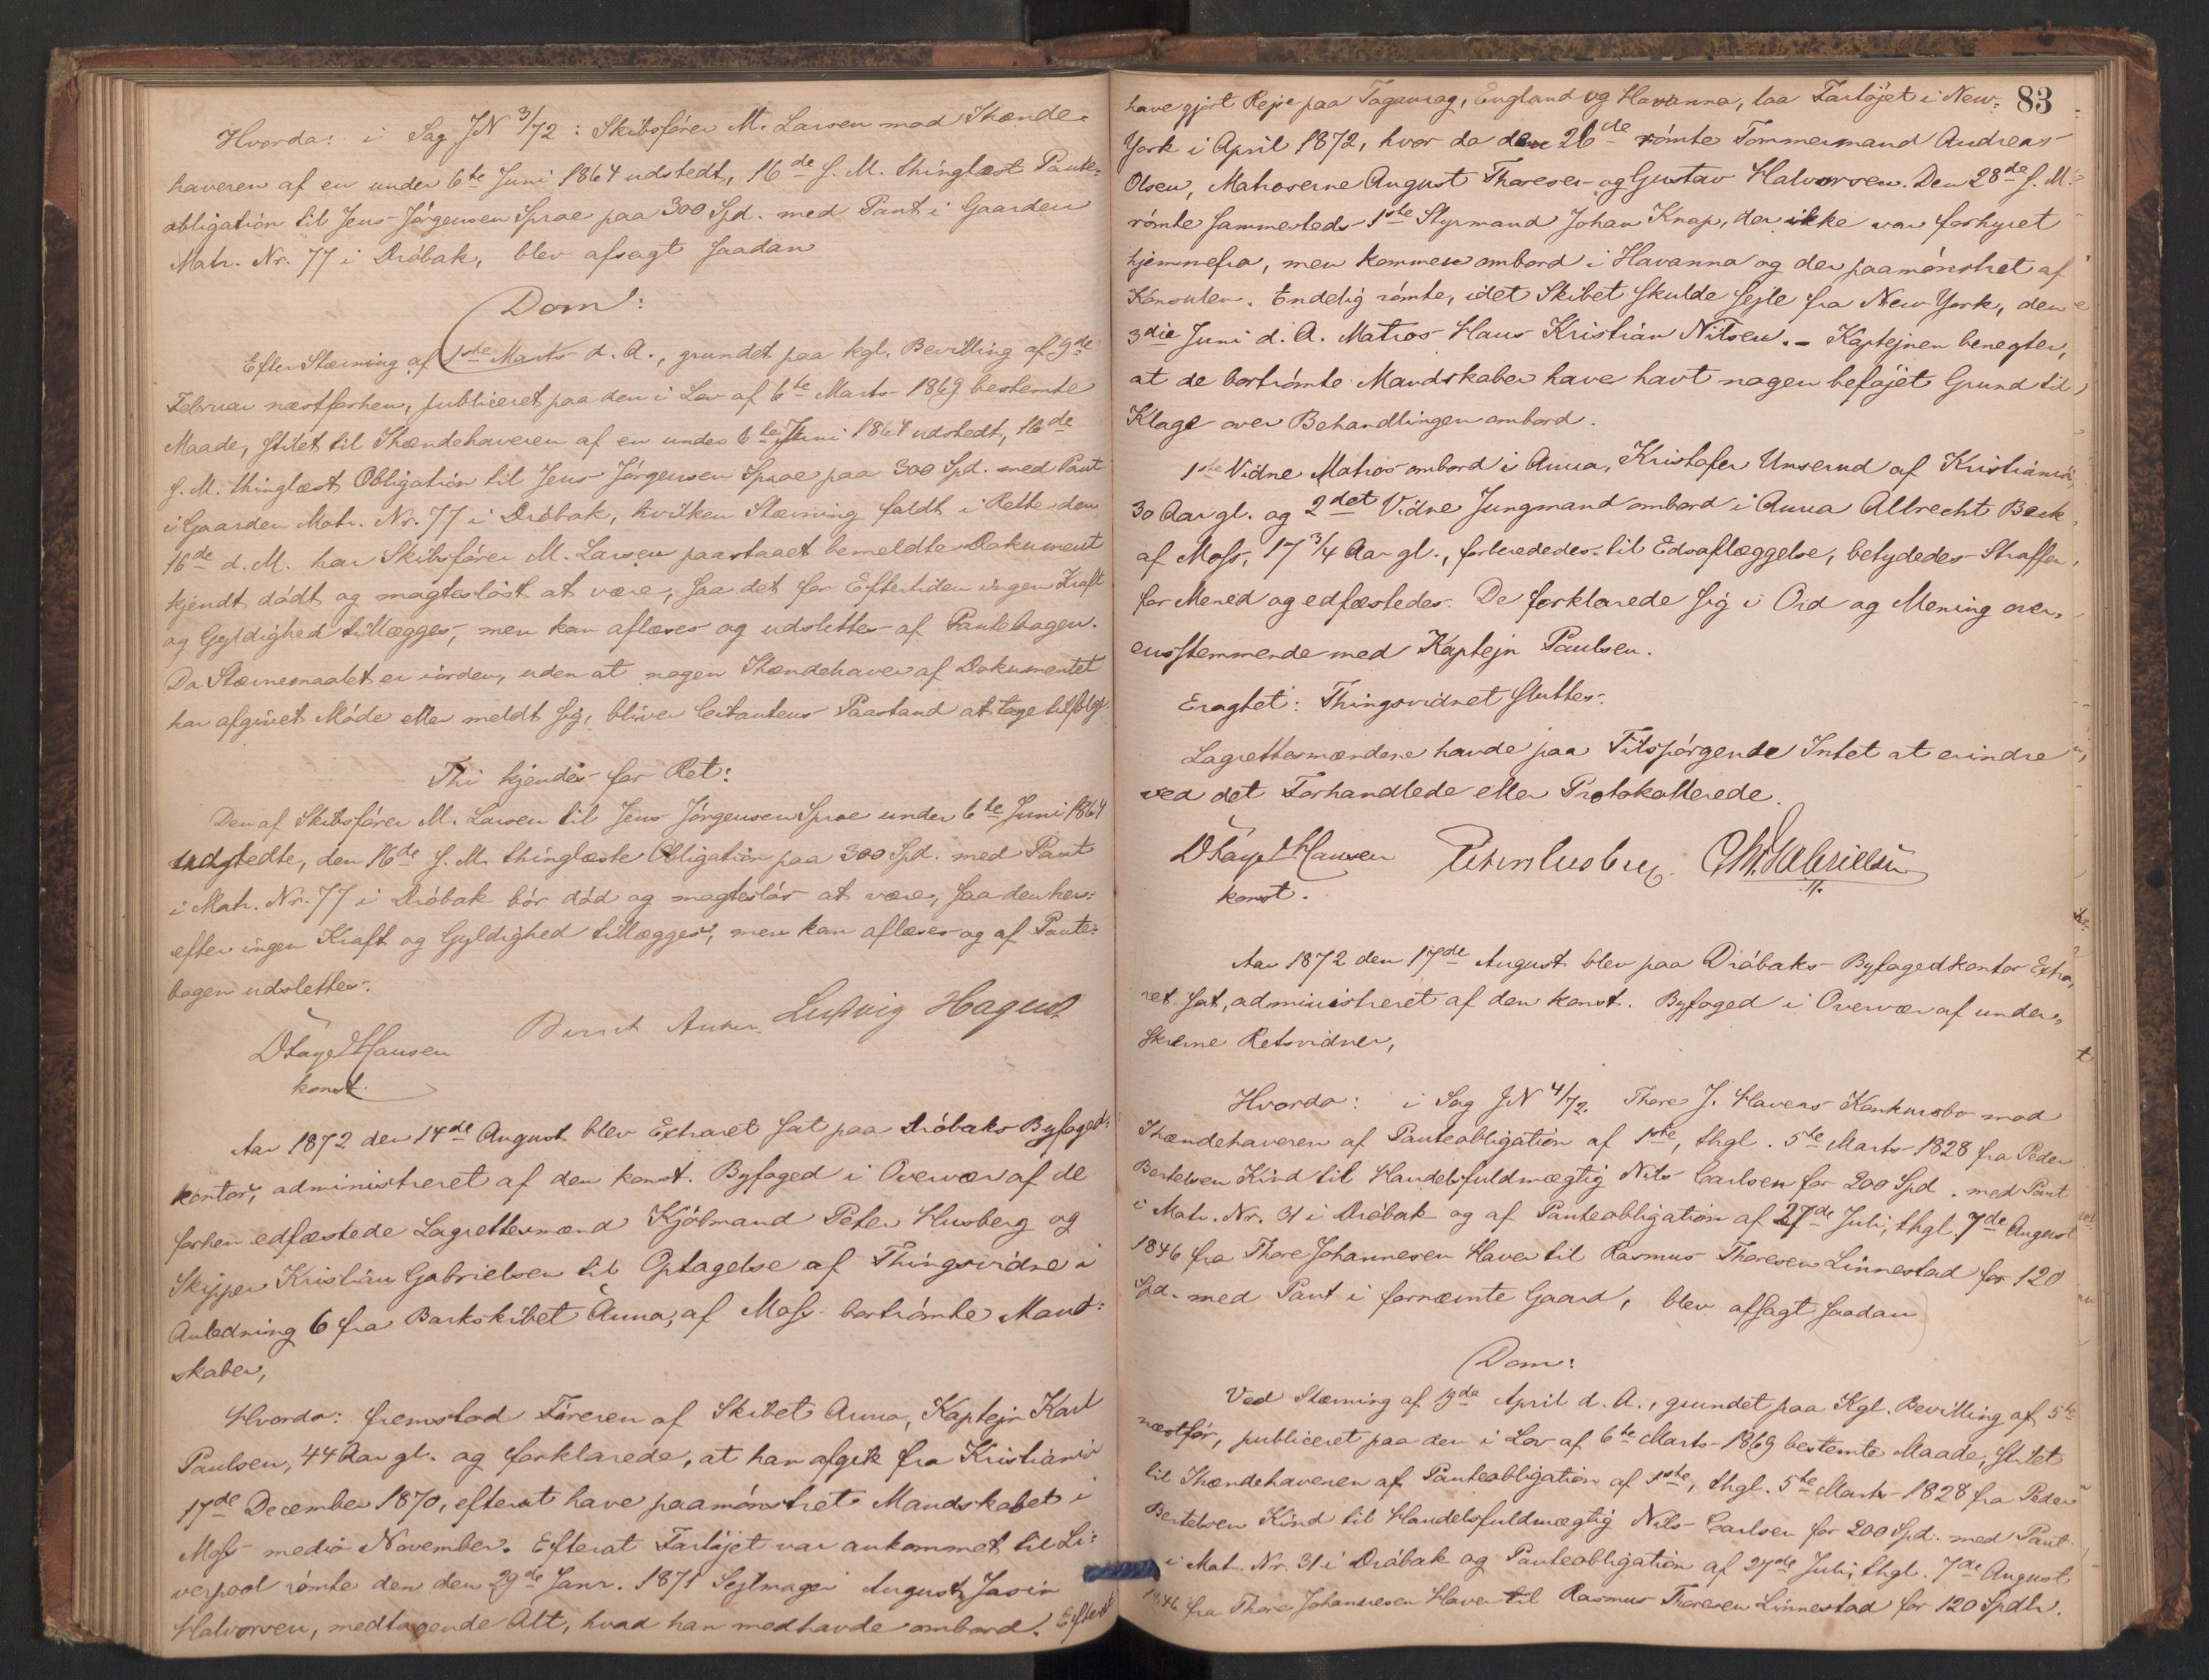 Hvorda: i Sag JN 3/72: Skibsfører M. Larsen mod Ihænde-
haveren af en under 6te Juni 1864 udstedt, 16de s. M. thinglæst Pante-
obligation til Jens Jørgensen Sproe paa 300 Spd. med Pant i Gaarden
Matr. Nr. 77 i Drøbak, blev afsagt saadan
Dom:
Efter Stævning af 1ste Marts d. A., grundet paa kgl. Bevilling af 9de
Februar næstforhen, publiceret paa den i Lov af 6te Marts 1869 bestemte
Maade, stilet til Ihændehaveren af en under 6te Juni 1864 udstedt, 16de
s. M. thinglæst Obligation til Jens Jørgensen Sproe paa 300 Spd. med Pant
i Gaarden Matr. Nr. 77 i Drøbak, hvilken Stævning faldt i Rette den
16de d. M. har Skibsfører M. Larsen paastaaet bemeldte Dokument
kjendt dødt og magtesløst at være, saa det for Eftertiden ingen Kraft
og Gyldighed tillægges, men kan aflæses og udslettes af Pantebogen.
Da Stævnemaalet er iorden, uden at nogen Ihændehaver af Dokumentet
har afgivet Møde eller meldt sig, bliver Citantens Paastand at tage tilfølge.
Thi kjendes for Ret:
Den af Skibsfører M. Larsen til Jens Jørgensen Sproe under 6te Juni 1864
udstedte, den 16de s. M. thinglæste Obligation paa 300 Spd. med Pant
i Matr. Nr. 77 i Drøbak bør død og magtesløs at være, saa den her-
efter ingen Kraft og Gyldighed tillægges, men kan aflæses og af Pante-
bogen udslettes.
Ludvig Hagen
D Faye Hansen
konst.
Aar 1872 den 14de August blev Extraret sat paa Drøbaks Byfoged-
kontor, administreret af den konst. Byfoged i Overvær af de
forhen edfæstede Lagrettesmænd Kjøbmand Peter Husberg og
Skipper Kristian Gabrielsen til Optagelse af Thingsvidne i
Anledning 6 fra Barkskibet Anna, af Moss bortrømte Mand-
skaber,
Hvorda: fremstod Føreren af Skibet Anna, Kaptejn Karl
Paulsen, 44 Aar gl. og forklarede, at han afgik fra Kristiania
17de December 1870, efterat have paamønstret Mandskabet i
Moss medio November. Efterat Fartøjet var ankommet til Li-
verpool rømte den den 29de Janr. 1871 Sejlmager August
Halvorsen, medtagende Alt, hvad han medhavde ombord. Efterat
83
have gjort Rejse paa Taganrog, England og Havanna, laa Fartøjet i New-
York i April 1872, hvor da den 26de rømte Tømmermand Andreas
Olsen, Matroserne August Thoresen og Gustav Halvorsen. Den 28de s. M.
rømte sammesteds 1ste Styrmand Johan Knap, der ikke var forhyret
hjemmefra, men kommen ombord i Havanna og der paamønstret af
Konsulen. Endelig rømte, idet Skibet skulde sejle fra New York, den
3die Juni d. A. Matros Hans Kristian Nilsen. - Kaptejnen benegter,
at de bortrømte Mandskaber have havt nogen beføjet Grund til
Klage over Behandlingen ombord.
1ste Vidne Matros ombord i Anna, Kristofer Unserud af Kristiania,
30 Aar gl. og 2det Vidne Jungmand ombord i Anna Albrecht Beck
af Moss, 17 3/4 Aar gl., forberededes til Edsaflæggelse, betydedes Straffen
for Mened og edfæstedes. De forklarede sig i Ord og Mening over-
ensstemmende med Kaptejn Paulsen.
Eragtet: Thingsvidnet sluttes.
Lagrettesmændene havde paa Tilspørgende Intet at erindre
ved det Forhandlede eller Protokollerede.
D Faye Hansen Peter Husberg. Chr. Gabrielsen
konst.
Aar 1872 den 17de August blev paa Drøbaks Byfogedkontor Extra-
ret sat, administreret af den konst. Byfoged i Overvær af under-
skrevne Retsvidner,
Hvorda: i Sag JN 4/72. Thore J. Havers Konkursbo mod
Ihændehaveren af Panteobligation af 1ste, thgl. 5te Marts 1828 fra Peder
Bertelsen Kind til Handelsfuldmægtig Nils Carlsen for 200 Spd. med Pant
i Matr. Nr. 31 i Drøbak og af Panteobligation af 27de Juli, thgl. 7de August
1846 fra Thore Johannesen Haver til Rasmus Thoresen Linnestad for 120
Spd. med Pant i fornævnte Gaard, blev afsagt saadan
Dom:
Ved Stævning af 19de April d. A., grundet paa Kgl. Bevilling af 5te
næstfør, publiceret paa den i Lov af 6te Marts 1869 bestemte Maade, stilet
til Ihændehaveren af Panteobligation af 1ste, thgl. 5te Marts 1828 fra Peder
Bertelsen Kind til Handelsfuldmægtig Nils Carlsen for 200 Spd. med Pant
i Matr. Nr. 31 i Drøbak og Panteobligation af 27de Juli, thgl. 7de August
1846 fra Thore Johannesen Haver til Rasmus Thoresen Linnestad for 120 Spdlr.